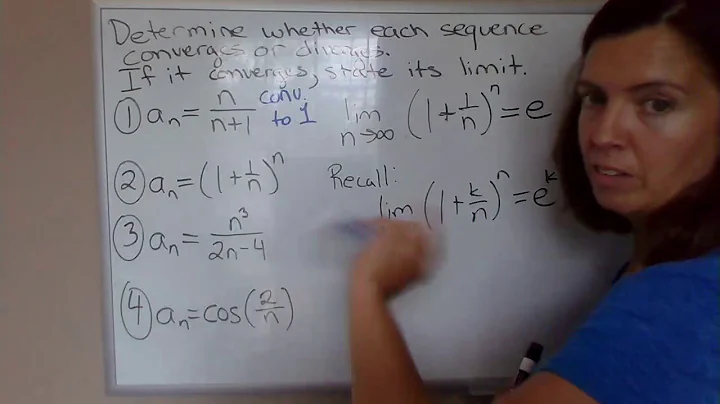 Determine whether each sequence
converges or diverges.
If it converges, state its limit.
① aₙ = n/(n+1) conv. to 1
lim n→∞ (1+1/n)ⁿ = e
② aₙ = (1+1/n)ⁿ
Recall:
lim (1+k/n)ⁿ = eᵏ
③ aₙ = n³/(2n-4)
④ aₙ = cos(2/n)